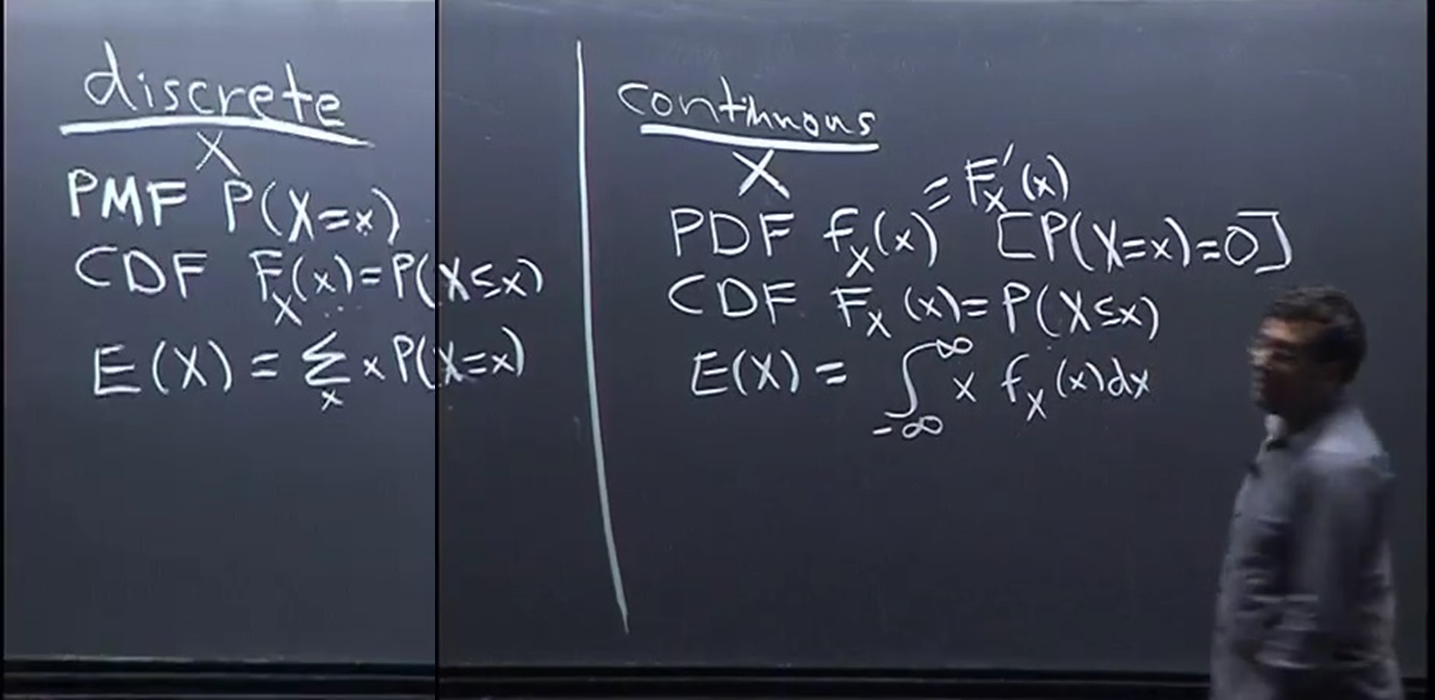 discrete
X
PMF P(X=x)
CDF F_X(x)=P(X≤x)
E(X) = Σ_x x P(X=x)
continuous
X
PDF f_X(x) = F'_X(x) [P(X=x)=0]
CDF F_X(x)=P(X≤x)
E(X) = ∫_{-∞}^{∞} x f_X(x)dx